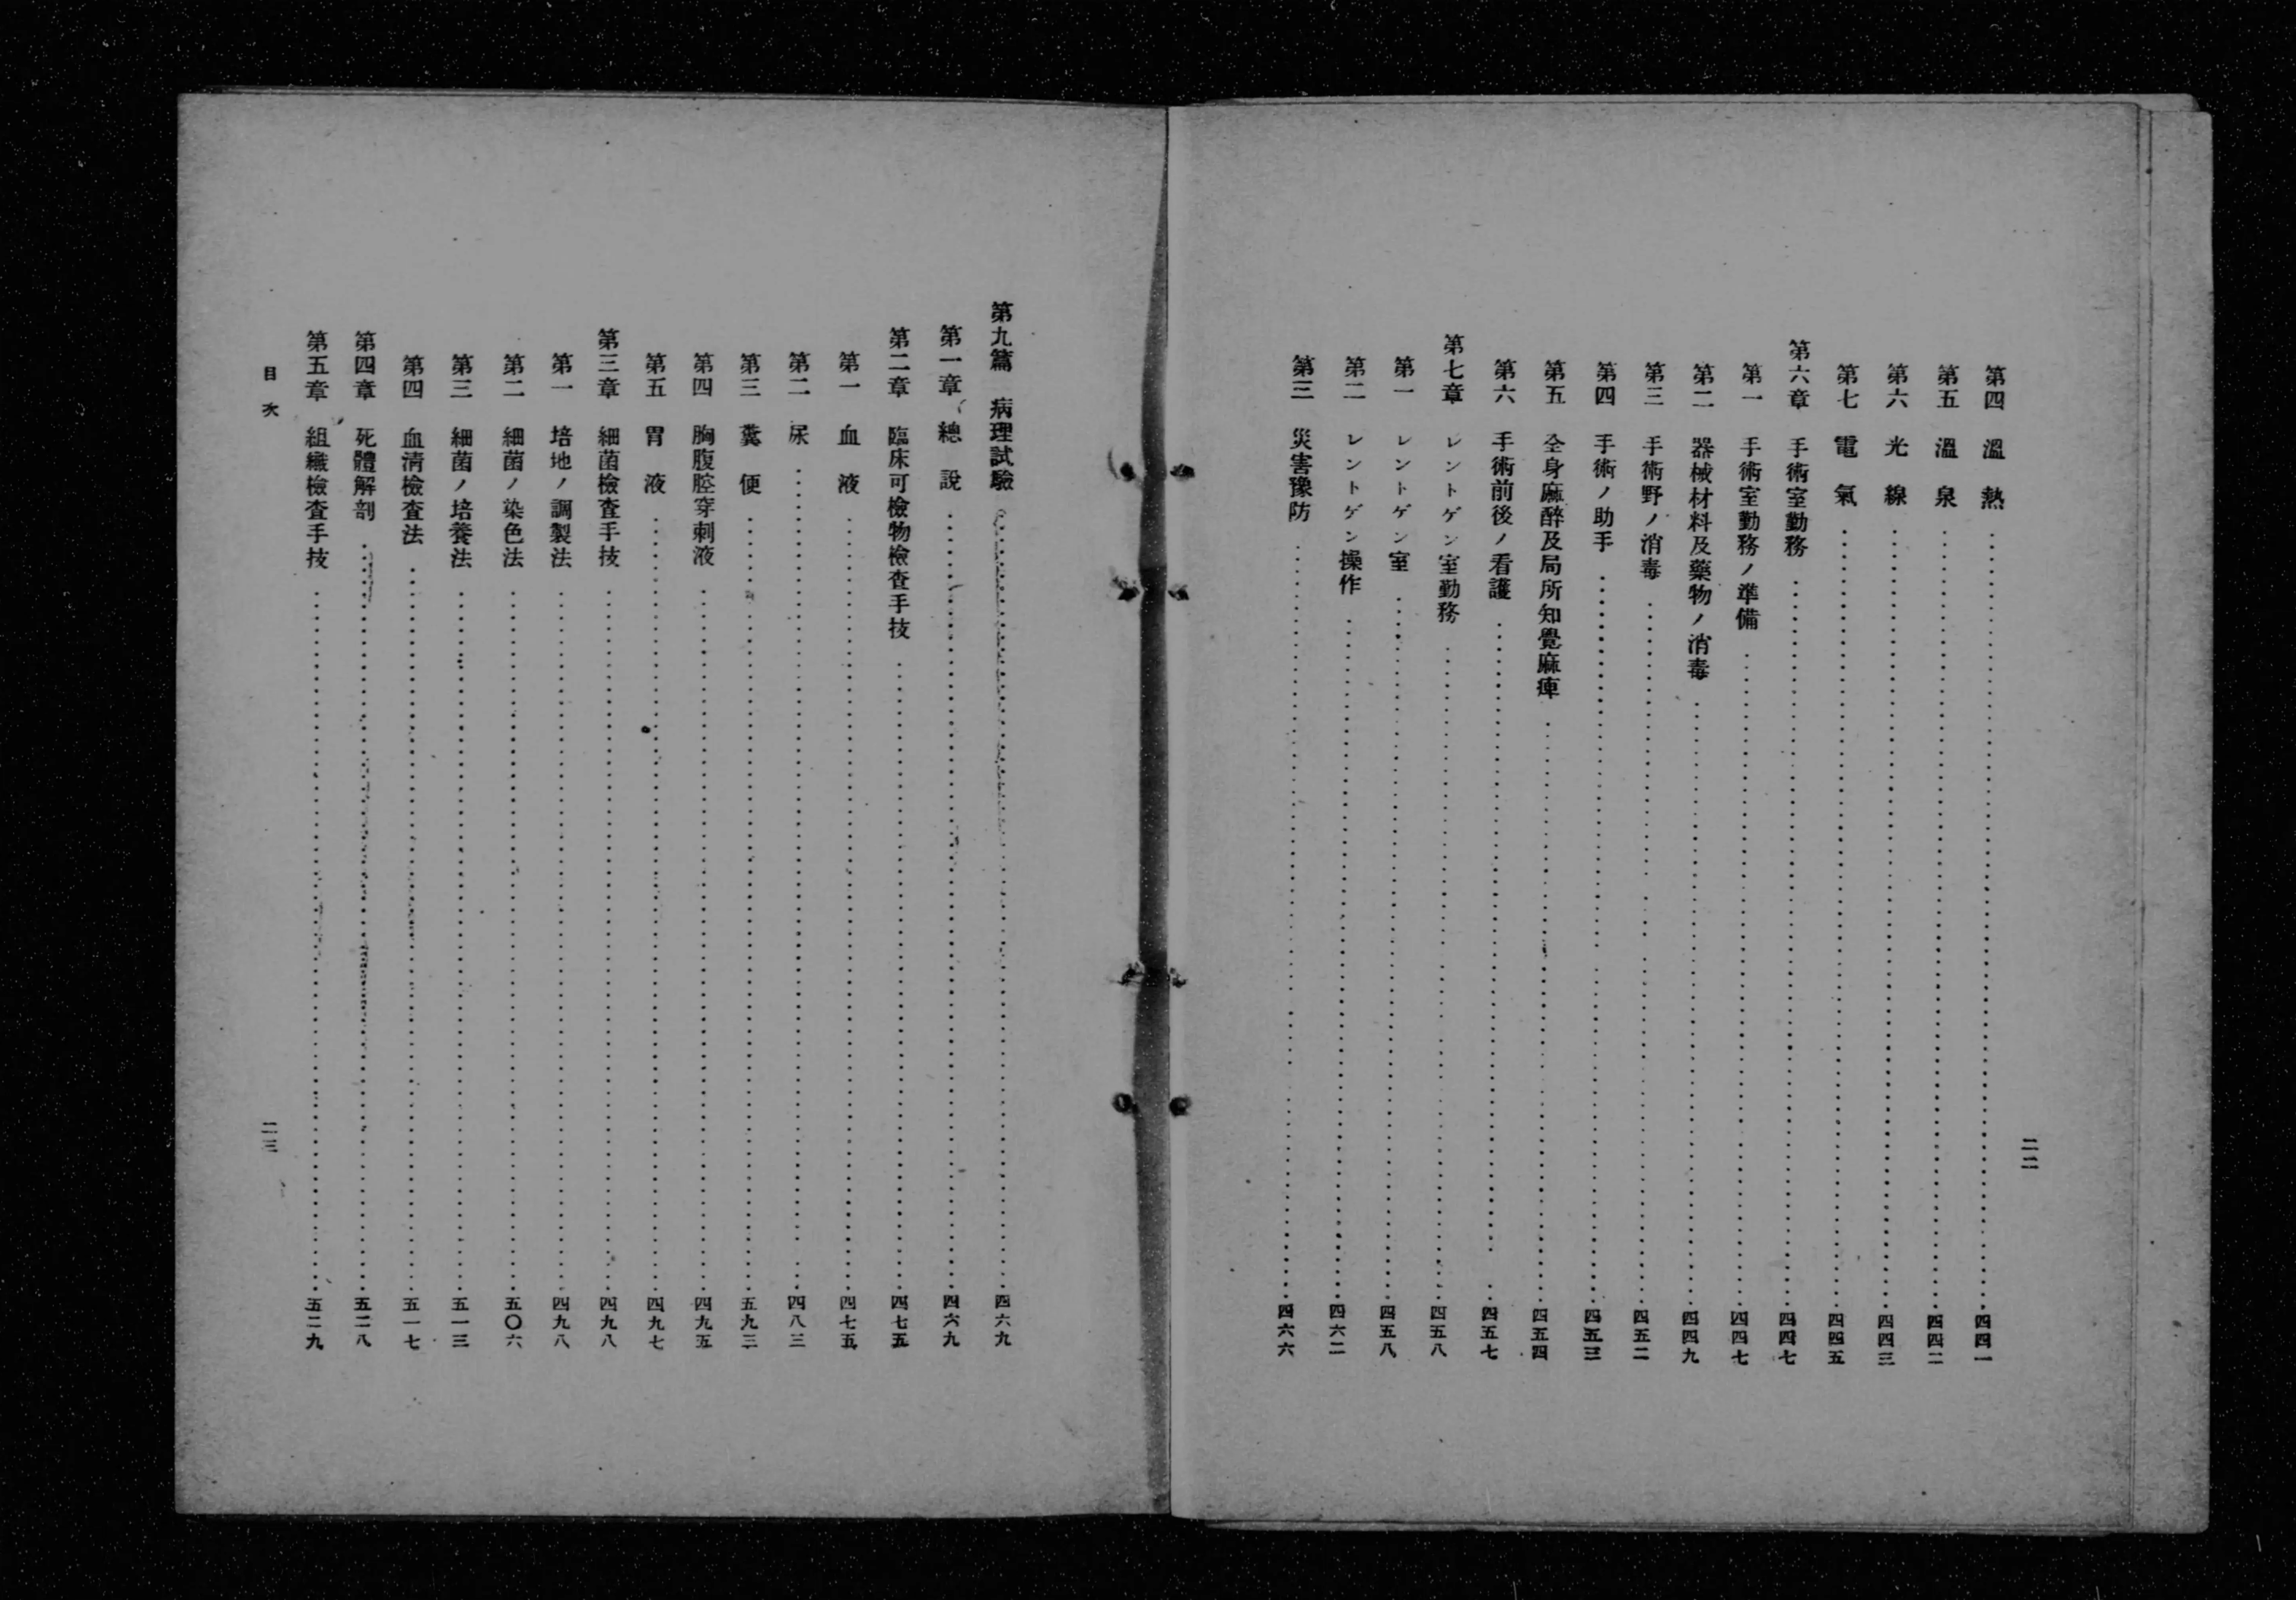 二二
第四 溫熱 四四一
第五 溫泉 四四二
第六 光線 四四三
第七 電氣 四四五
第六章 手術室勤務 四四七
第一 手術室勤務ノ準備 四四七
第二 器械材料及藥物ノ消毒 四四九
第三 手術野ノ消毒 四五二
第四 手術ノ助手 四五三
第五 全身麻醉及局所知覺麻痺 四五四
第六 手術前後ノ看護 四五七
第七章 レントゲン室勤務 四五八
第一 レントゲン室 四五八
第二 レントゲン操作 四六二
第三 災害豫防 四六六
第九篇 病理試驗 四六九
第一章 總說 四六九
第二章 臨床可檢物檢查手技 四七五
第一 血液 四七五
第二 尿 四八三
第三 糞便 五九三
第四 胸腹腔穿刺液 四九五
第五 胃液 四九七
第三章 細菌檢查手技 四九八
第一 培地ノ調製法 四九八
第二 細菌ノ染色法 五〇六
第三 細菌ノ培養法 五一三
第四 血清檢查法 五一七
第四章 死體解剖 五二八
第五章 組織檢查手技 五二九
目次
二三